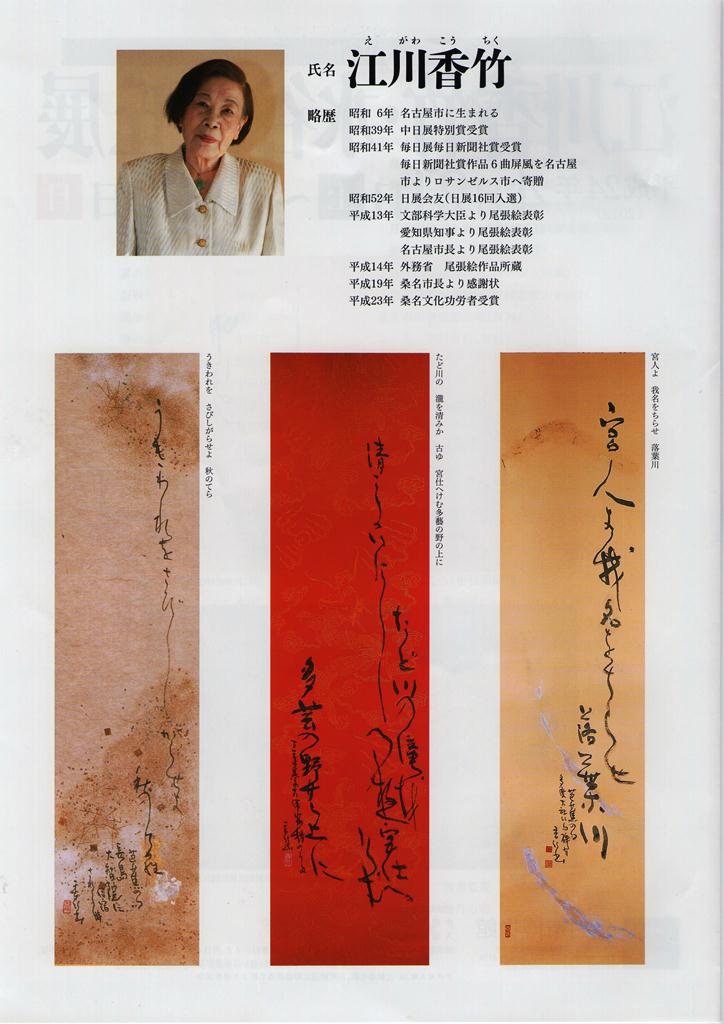 え がわ こう ちく
氏名 江川香竹
略歴 昭和 6年 名古屋市に生まれる
昭和39年 中日展特別賞受賞
昭和41年 毎日展毎日新聞社賞受賞
毎日新聞社賞作品6曲屏風を名古屋
市よりロサンゼルス市へ寄贈
昭和52年 日展会友(日展16回入選)
平成13年 文部科学大臣より尾張絵表彰
愛知県知事より尾張絵表彰
名古屋市長より尾張絵表彰
平成14年 外務省 尾張絵作品所蔵
平成19年 桑名市長より感謝状
平成23年 桑名文化功労者受賞
宮人よ 我名をちらせ 落葉川
宮人よ我名をちらせ
落葉川
たど川の 瀧を清みか 古ゆ 宮仕へけむ多藝の野の上に
たど川の瀧
清
宮仕へ
多芸の野
上に
うきわれを さびしがらせよ 秋のてら
うきわれをさびしがらせよ
秋